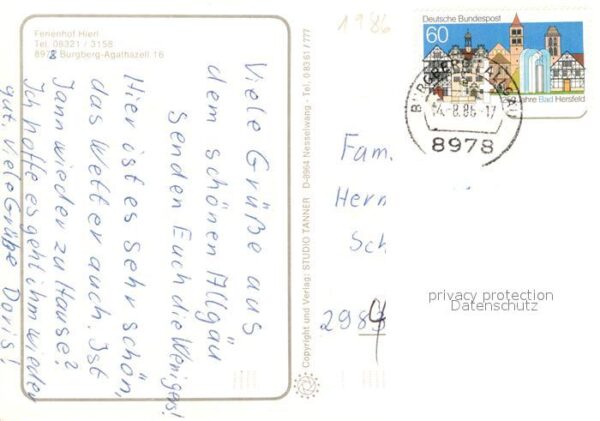 Ferienhof Hierl
Tel. 08321 / 3158
8978 Burgberg-Agathazell 16
Viele Grüße aus
dem schönen Allgäu
Senden Euch die Wenigers!
Hier ist es sehr schön,
das Wetter auch. Ist
Jann wieder zu Hause?
Ich hoffe es geht ihm wieder
gut. Viele Grüße Doris!
Copyright und Verlag: STUDIO TANNER D-8964 Nesselwang - Tel. 0 83 61 / 777
1986
Deutsche Bundespost
60
Jahre Bad Hersfeld
BURGBERG I. ALLGÄU
-8.86-17
8978
Fam.
Herm
Sch
298
privacy protection
Datenschutz